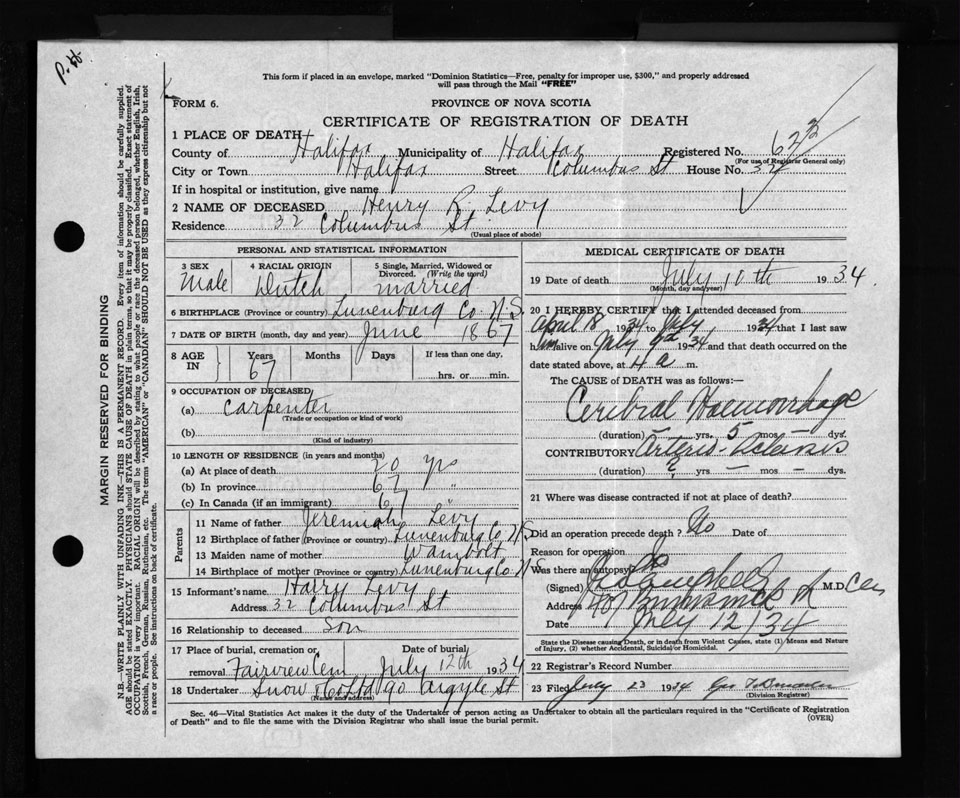 P.H.
This form if placed in an envelope, marked "Dominion Statistics—Free, penalty for improper use, $300," and properly addressed
will pass through the Mail "FREE"
FORM 6.
PROVINCE OF NOVA SCOTIA
CERTIFICATE OF REGISTRATION OF DEATH
1 PLACE OF DEATH
County of Halifax Municipality of Halifax Registered No. 623
(For use of Registrar General only)
City or Town Halifax Street Columbus St House No. 34
If in hospital or institution, give name
2 NAME OF DECEASED Henry R. Levy
Residence 32 Columbus St.
(Usual place of abode)
PERSONAL AND STATISTICAL INFORMATION
3 SEX Male
4 RACIAL ORIGIN Dutch
5 Single, Married, Widowed or Divorced. (Write the word) married
6 BIRTHPLACE (Province or country) Lunenburg Co. N.S.
7 DATE OF BIRTH (month, day and year) June 1867
8 AGE IN Years 67 Months Days If less than one day, hrs. or min.
9 OCCUPATION OF DECEASED
(a) Carpenter
(Trade or occupation or kind of work)
(b)
(Kind of industry)
10 LENGTH OF RESIDENCE (in years and months)
(a) At place of death 20 yrs
(b) In province 67 "
(c) In Canada (if an immigrant) 67 "
Parents
11 Name of father Jeremiah Levy
12 Birthplace of father (Province or country) Lunenburg Co N.S
13 Maiden name of mother Wambolt
14 Birthplace of mother (Province or country) Lunenburg Co. N.S
15 Informant's name Harry Levy
Address 32 Columbus St
16 Relationship to deceased Son
17 Place of burial, cremation, or removal Fairview Cem Date of burial July 12th 1934
18 Undertaker Snow & Co Ltd 90 Argyle St
(Name and address)
MEDICAL CERTIFICATE OF DEATH
19 Date of death July 10th 1934
(Month, day and year)
20 I HEREBY CERTIFY that I attended deceased from
April 18 1934 to July 1934 that I last saw
him alive on July 9th 1934 and that death occurred on the
date stated above, at 4 a m.
The CAUSE of DEATH was as follows:—
Cerebral Haemorrhage
(duration) — yrs. 5 mos — dys.
CONTRIBUTORY Arterio-Sclerosis
(duration) ? yrs — mos — dys.
21 Where was disease contracted if not at place of death?
Did an operation precede death? No Date of
Reason for operation
Was there an autopsy? No
(Signed) M.D.
Address 407
Date July 12/34
State the Disease causing Death, or in death from Violent Causes, state (1) Means and Nature
of Injury, (2) whether Accidental, Suicidal or Homicidal.
22 Registrar's Record Number
23 Filed July 23 1934
(Division Registrar)
Sec. 46—Vital Statistics Act makes it the duty of the Undertaker or person acting as Undertaker to obtain all the particulars required in the "Certificate of Registration
of Death" and to file the same with the Division Registrar who shall issue the burial permit.
(OVER)
MARGIN RESERVED FOR BINDING
N.B.—WRITE PLAINLY WITH UNFADING INK—THIS IS A PERMANENT RECORD. Every item of information should be carefully supplied.
AGE should be stated EXACTLY. PHYSICIANS should STATE CAUSE OF DEATH in plain terms, so that it may be properly classified. Exact statement of
OCCUPATION is very important. RACIAL ORIGIN will be described by stating to what people or race the deceased person belonged, whether English, Irish,
Scottish, French, German, Russian, Ruthenian, etc. The terms "AMERICAN" or "CANADIAN" SHOULD NOT BE USED as they express citizenship but not
a race or people. See instructions on back of certificate.